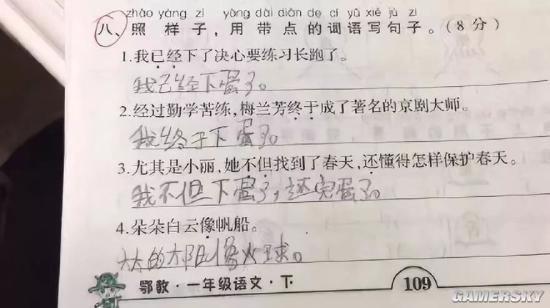 zhào yàng zi yòng dài diǎn de cí yǔ xiě jù zi
八、照样子，用带点的词语写句子。（8分）
1.我已经下了决心要练习长跑了。
我已经下蛋了。
2.经过勤学苦练，梅兰芳终于成了著名的京剧大师。
我终于下蛋了。
3.尤其是小丽，她不但找到了春天，还懂得怎样保护春天。
我不但下蛋了，还完蛋了。
4.朵朵白云像帆船。
大大的太阳像火球。
鄂教·一年级语文·下
109
GAMERSKY